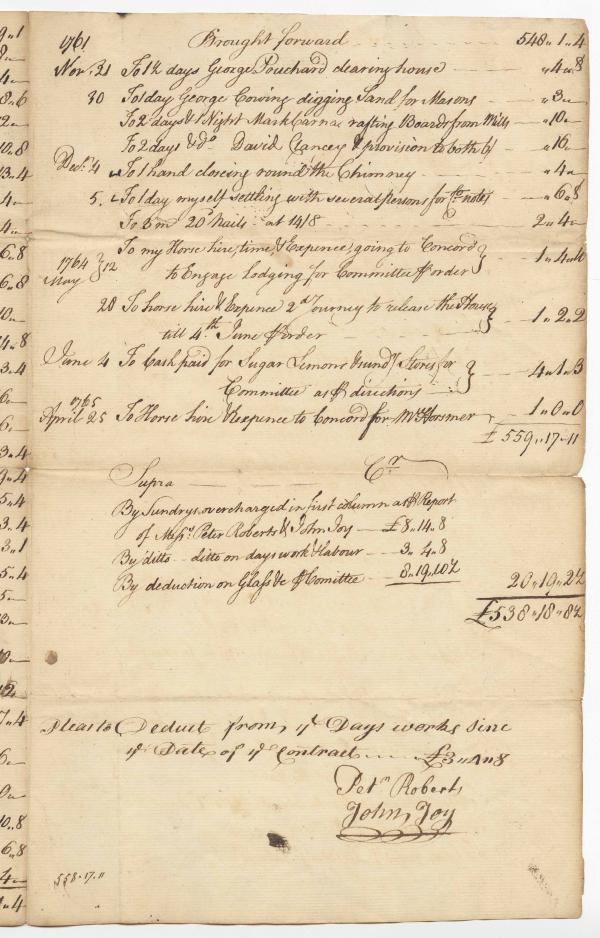 1761 Brought forward 548 " 1 " 4
Nov. 21 To 12 days George Pouchard clearing house " 4 " 8
30 To 1 day George Cowing digging Sand for Masons " 3 "
To 2 days & 1 Night Mark rafting Boards from Mills " 10 "
To 2 days & do David Clancey & provision to both 6/ " 16 "
Decr. 4 To 1 hand closeing round the Chimney " 4 "
5. To 1 day myself settling with several persons for notes " 6 " 8
To 3m 20d nails at 14/8 2 " 4 "
To my Horse hire, time, & Expence, going to Concord
1764 May 12 to Engage Lodging for Committee order 1 " 4 "
28 To horse hire & Expence 2d Journey to release the House
till 4th June order 1 " 2 " 2
June 4 To Cash paid for Sugar Lemons & sundy Stores for
Committee as directions 4 " 1 " 3
1765
April 25 To Horse hire & expence to Concord for Mr Hosmer 1 " 0 " 0
£ 559 " 17 " 11
Supra Cr
By Sundrys overcharged in first column as Report
of Messrs Peter Roberts & John Joy £8 " 14 " 8
By ditto ditto on days work & labour 3 " 4 " 8
By deduction on Glass &c Comittee 8 " 19 " 10½
20 " 19 " 2½
£538 " 18 " 8½
Please to Deduct from ye Days works Sinc
ye Date of ye Contract £3 " 4 " 8
Petr Roberts
John Joy
558 " 17 " 11